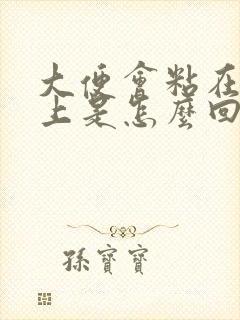 大便會粘在
上是怎麼回
孫寶寶